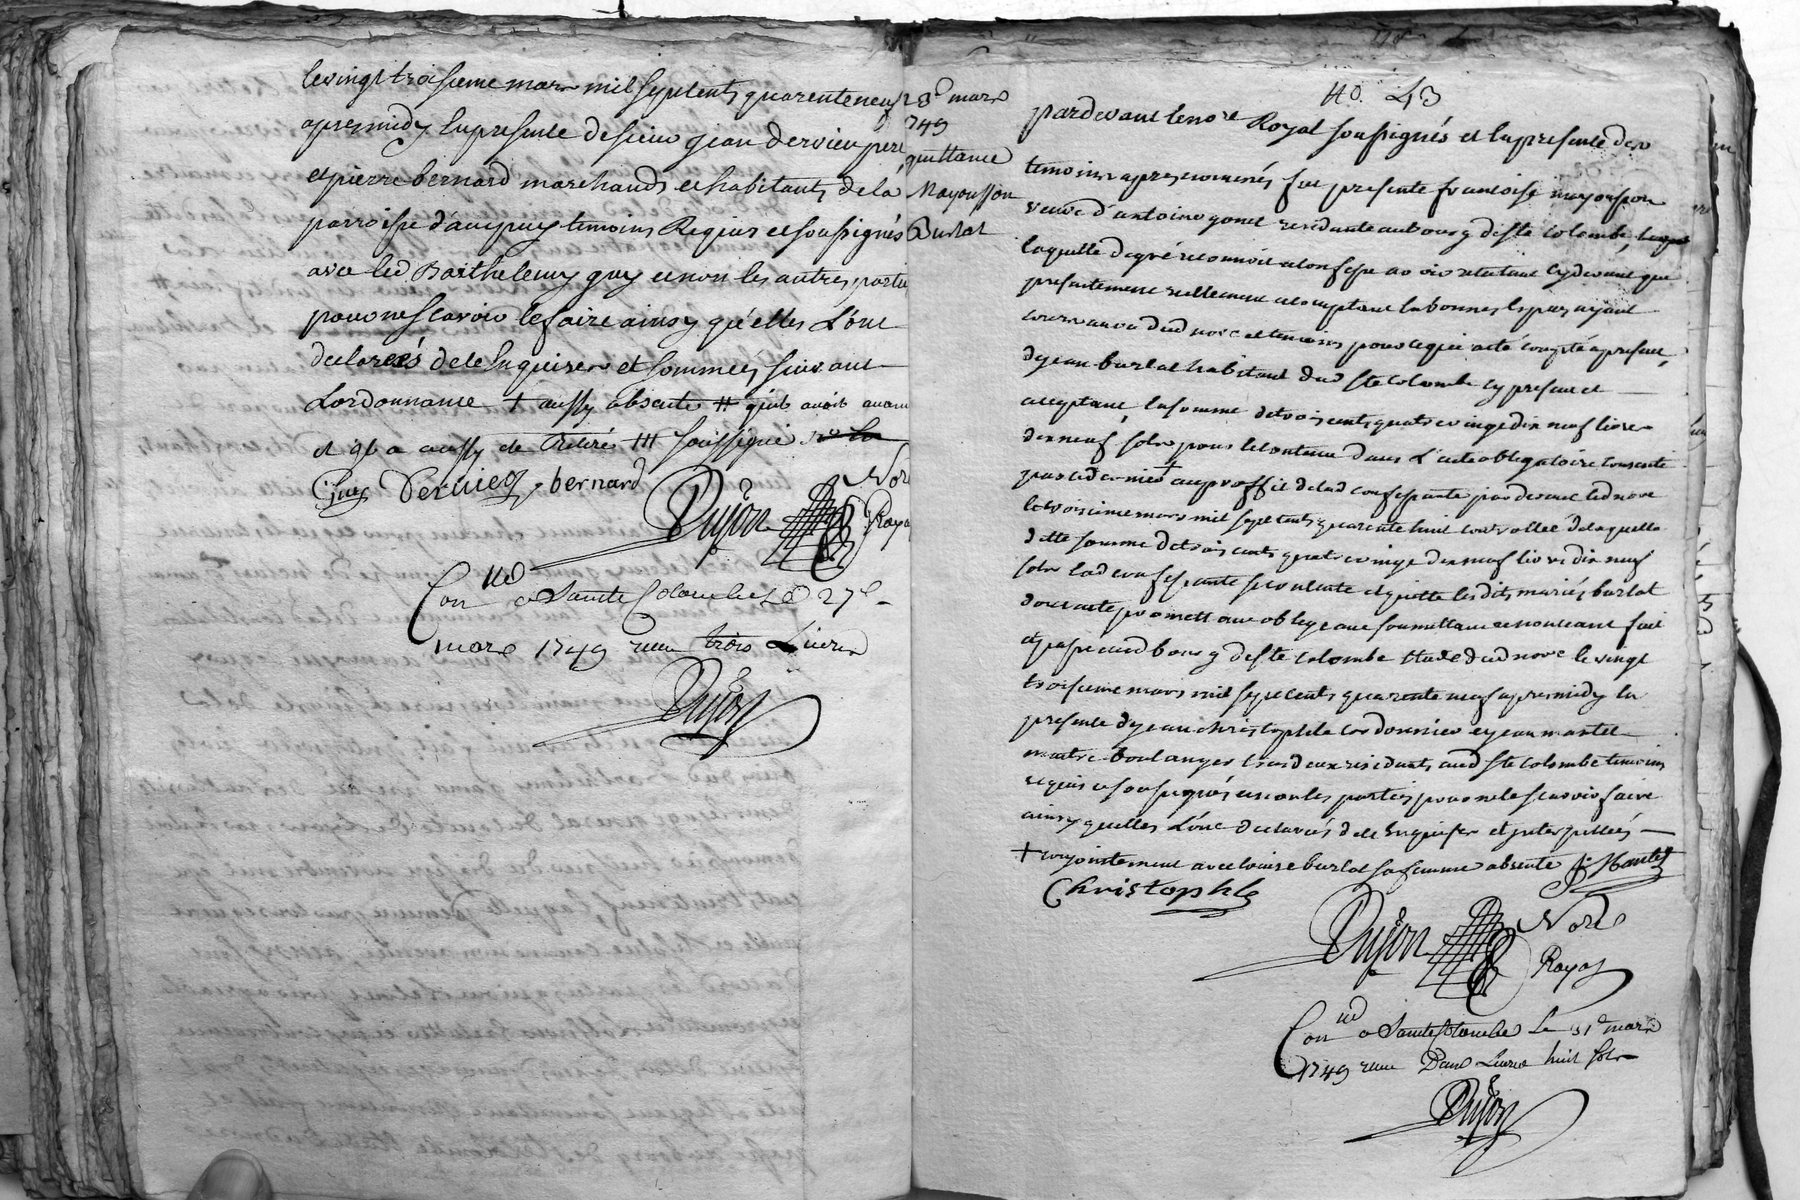 le vingt troisieme mars mil sept cents quarente neuf
apres midy En presence de sieur jean dervieu pere
et pierre bernard marchands et habitants de la
parroisse d'ampuy temoins Requis et soussignés
avec led Barthelemy guy et non les autres parties
pour ne scavoir le faire ainsy qu'elles L'ont
declarees de ce Enquises et sommees suivant
Lordonnance + aussy absente # qu'il avoit avant
et qb a aussy de Retirés ## soussigné
Guy Dervieu bernard
Dujon Nore
Royal
Con lled a Sainte Colombe Le 27e
mars 1749 receu trois Livres
Dujon
23e mars
749
quittance
Mayousson
Burlat
No. 43
pardevant le nore Royal soussignés et En presence des
temoins apres nommés fut presente francoise mayousson
veuve d'antoine gonet residante au bourg de ste Colombe,
laquelle de gré reconnoit et confesse avoir
presentement reellement et comptant En bonnes Especes ayant
cours au vu dud nore et temoins pour ce qui a été compté a present,
de jean burlat habitant dud ste Colombe cy present et
acceptant la somme de trois cents quatre vingt dix neuf livres
dix neuf sols pour le contenu dans L'acte obligatoire consenti
par ce dernier + au proffit de lad confessante pardevant led nore
le troisieme mars mil sept cents quarente huit controllé de laquelle
ditte somme de trois cents quatre vingt dix neuf livres dix neuf
sols lad confessante se contente et quitte lesdits mariés burlat
dont acte promettant obligeant soumettant et renonceant fait
et passé aud bourg de ste Colombe Etude dud nore le vingt
troisieme mars mil sept cents quarente neuf apres midy En
presence de jean christophle cordonnier et jean mantel
maitre boulanger tous deux residants aud ste Colombe temoins
requis et soussignés et non les parties pour ne le scavoir faire
ainsy qu'elles L'ont declarés de ce Enquises et interpellées
+ conjointement avec Louise burlat sa femme absente J Mantel
Christophle
Dujon Nore
Royal
Con lled a Sainte Colombe Le 31e mars
1749 receu Deux Livres huit sols
Dujon